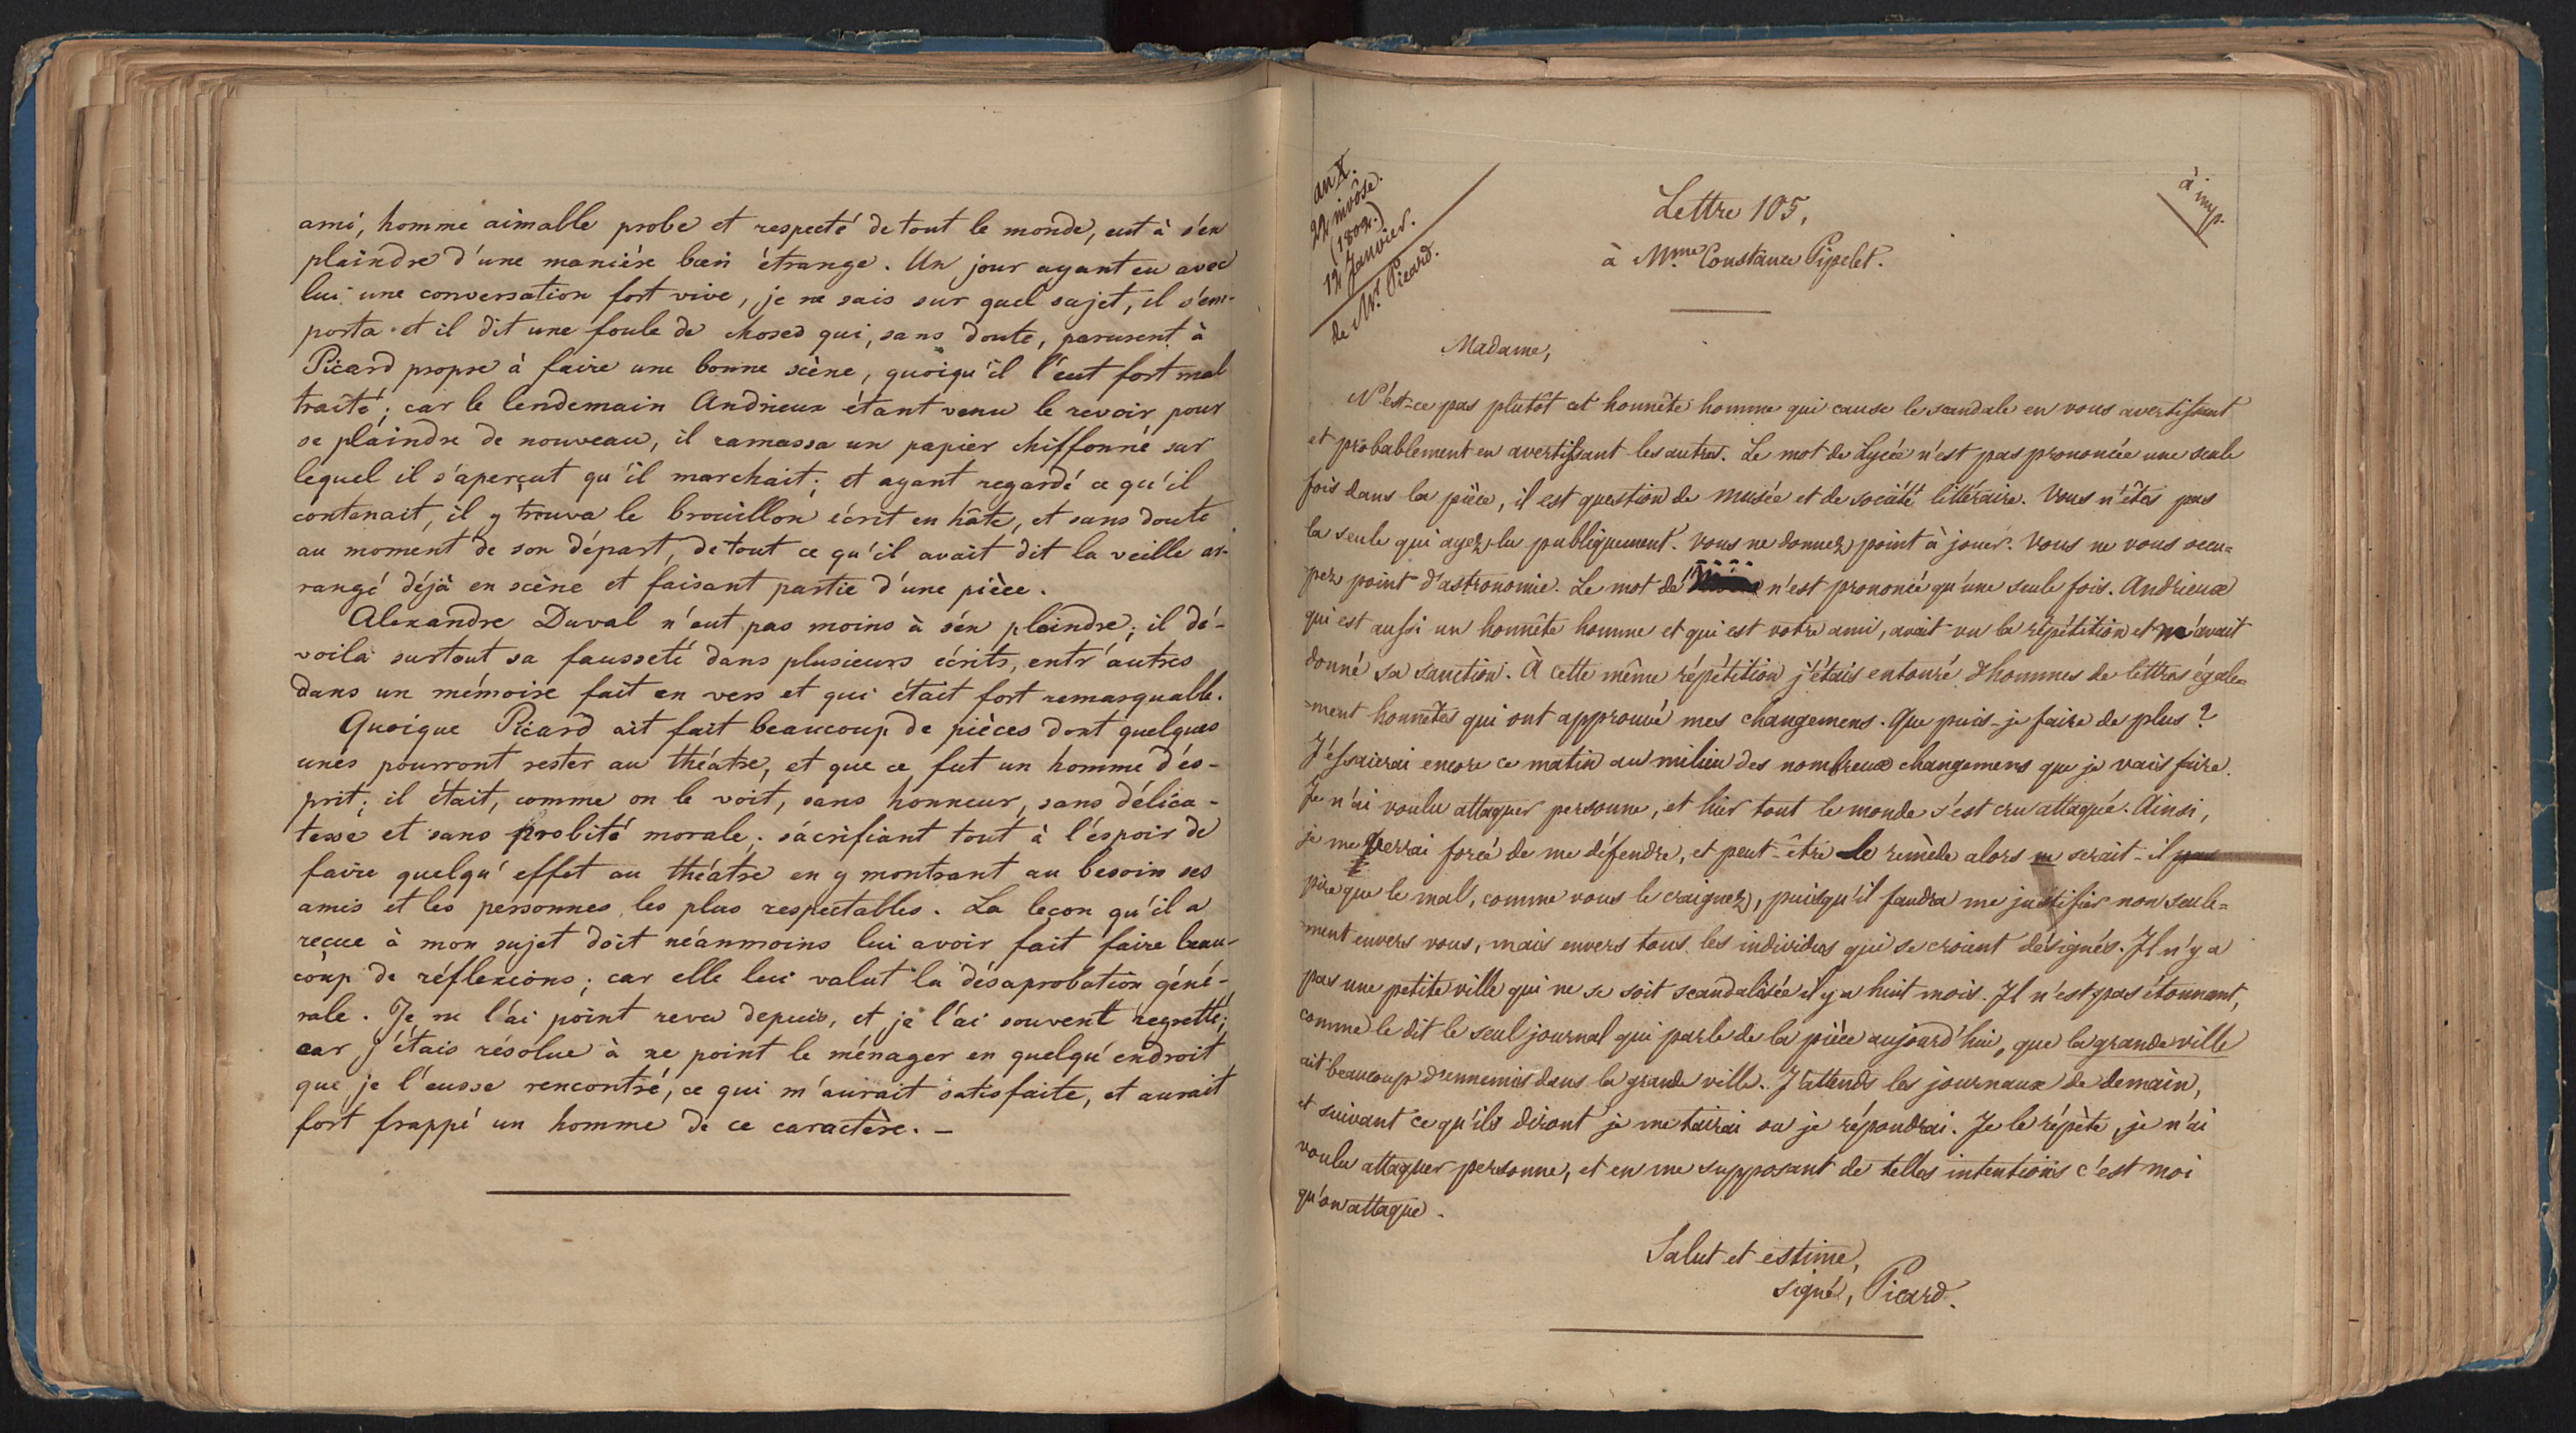 ami, homme aimable probe et respecté de tout le monde, eut à s'en
plaindre d'une manière bien étrange. Un jour ayant eu avec
lui une conversation fort vive, je ne sais sur quel sujet, il s'em-
porta et il dit une foule de choses qui, sans doute, parurent à
Picard propre à faire une bonne scène, quoiqu'il l'eut fort mal
traité; car le lendemain Andrieux étant venu le revoir pour
se plaindre de nouveau, il ramassa un papier chiffonné sur
lequel il s'aperçut qu'il marchait; et ayant regardé ce qu'il
contenait, il y trouva le brouillon écrit en hâte, et sans doute
au moment de son départ, de tout ce qu'il avait dit la veille ar-
rangé déjà en scène et faisant partie d'une pièce.
Alexandre Duval n'eut pas moins à s'en plaindre; il dé-
voila surtout sa fausseté dans plusieurs écrits, entr'autres
dans un mémoire fait en vers et qui était fort remarquable.
Quoique Picard ait fait beaucoup de pièces dont quelques
unes pourront rester au théâtre, et que ce fut un homme d'es-
prit; il était, comme on le voit, sans honneur, sans délica-
tesse et sans probité morale; sacrifiant tout à l'espoir de
faire quelqu'effet au théâtre en y montrant au besoin ses
amis et les personnes les plus respectables. La leçon qu'il a
reçue à mon sujet doit néanmoins lui avoir fait faire beau-
coup de réflexions; car elle lui valut la désaprobation géné-
rale. Je ne l'ai point revu depuis, et je l'ai souvent regretté;
car j'étais résolue à ne point le ménager en quelqu'endroit
que je l'eusse rencontré, ce qui m'aurait satisfaite, et aurait
fort frappé un homme de ce caractère. -
an X.
22 nivôse.
(1802.)
12 Janvier.
de Mr. Picard.
à imp.
Lettre 105,
à Mme Constance Pipelet.
Madame,
N'est-ce pas plutôt cet honnête homme qui cause le scandale en vous avertissant
et probablement en avertissant les autres. Le mot de Lycée n'est pas prononcée une seule
fois dans la pièce, il est question de musée et de société littéraire. Vous n'êtes pas
la seule qui ayez lu publiquement. Vous ne donnez point à jouer. Vous ne vous occu=
pez point d'astronomie. Le mot de n'est prononcé qu'une seule fois. Andrieux
qui est aussi un honnête homme et qui est votre ami, avait vu la répétition et m'avait
donné sa sanction. À cette même répétition j'étais entouré d'hommes de lettres égale=
=ment honnêtes qui ont approuvé mes changemens. Que puis-je faire de plus?
J'essaierai encore ce matin au milieu des nombreux changemens que je vais faire.
Je n'ai voulu attaquer personne, et hier tout le monde s'est cru attaqué. Ainsi,
je me verrai forcé de me défendre, et peut-être le remède alors ne serait-il pas
pire que le mal, comme vous le craignez, puisqu'il faudra me justifier non seule=
=ment envers vous, mais envers tous les individus qui se croient désignés. Il n'y a
pas une petite ville qui ne se soit scandalisée il y a huit mois. Il n'est pas étonnant,
comme le dit le seul journal qui parle de la pièce aujourd'hui, que la grande ville
ait beaucoup d'ennemis dans la grande ville. J'attends les journaux de demain,
et suivant ce qu'ils diront je me tairai ou je répondrai. Je le répète, je n'ai
voulu attaquer personne, et en me supposant de telles intentions c'est moi
qu'on attaque.
Salut et estime,
signé, Picard.